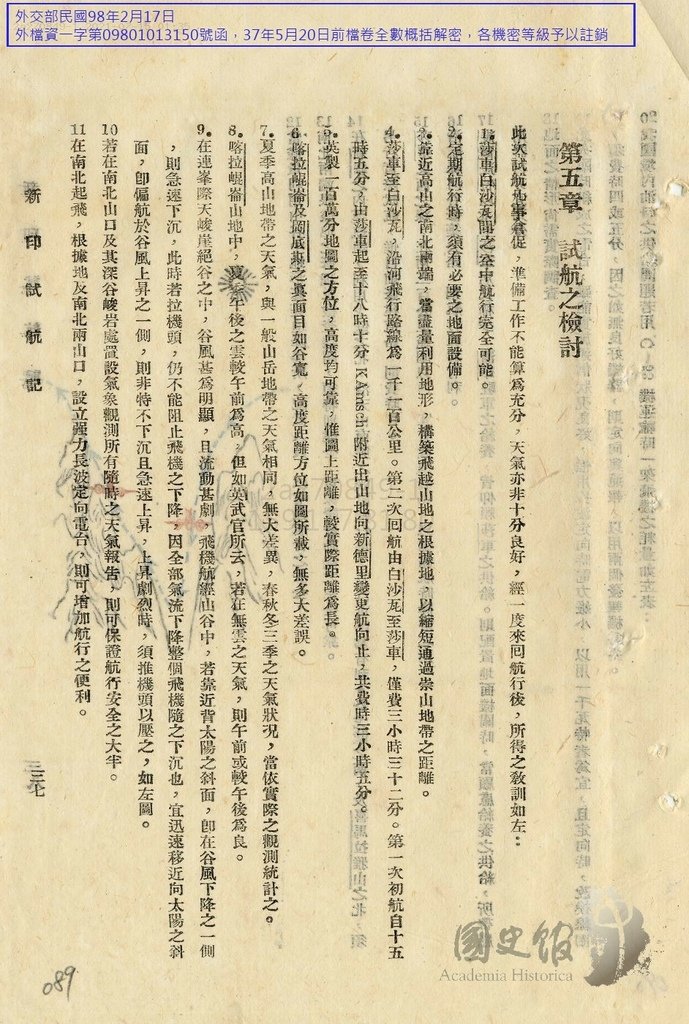 外交部民國98年2月17日
外檔資一字第09801013150號函，37年5月20日前檔卷全數概括解密，各機密等級予以註銷
第五章　試航之檢討
此次試航事倉促，準備工作不能算爲充分，天氣亦非十分良好，經一度來回航行後，所得之敎訓如左：
1.莎車白沙瓦間之空中航行完全可能。
2.定期航行時，須有必要之地面設備。
3.靠近高山之南北兩端，當盡量利用地形，構築飛越山地之根據地，以縮短通過崇山地帶之距離。
4.莎車至白沙瓦，沿河飛行路線爲一千一百公里。第二次回航由白沙瓦至莎車，僅費三小時三十二分。第一次初航自十五
時五分，由莎車起至十八時十分，附近出山地向新德里變更航向止，共費時三小時五分。
5.英製一百萬分地圖之方位，高度均可靠，惟圖上距離，較實際距離爲長。
6.喀拉崐崙及之眞面目如谷寬，高度距離方位如圖所載，無多大差誤。
7.夏季高山地帶之天氣，與一般山岳地帶之天氣相同，無大差異，春秋冬三季之天氣狀况，當依實際之觀測統計之。
8.喀拉崐崙山地中，夏季午後之雲較午前爲高，但如英武官所云，若在無雲之天氣，則午前或較午後爲良。
9.在連峯際天峻崖絕谷之中，谷風甚爲明顯，且流動甚劇，飛機航經山谷中，若靠近背太陽之斜面，卽在谷風下降之一側
，則急速下沉，此時若拉機頭，仍不能阻止飛機之下降，因全部氣流下降整個飛機隨之下沉也，宜迅速移近向太陽之斜
面，卽偏航於谷風上昇之一側，則非特不下沉且急速上昇，上昇劇烈時，須推機頭以壓之，如左圖。
10若在南北山口及其深谷峻岩處置設氣象觀測所有隨時之天氣報告，則可保證航行安全之大半。
11在南北起飛，根據地及南北兩山口，設立强力長波定向電台，則可增加航行之便利。
新印試航記
三七
089
國史館
Academia Historica